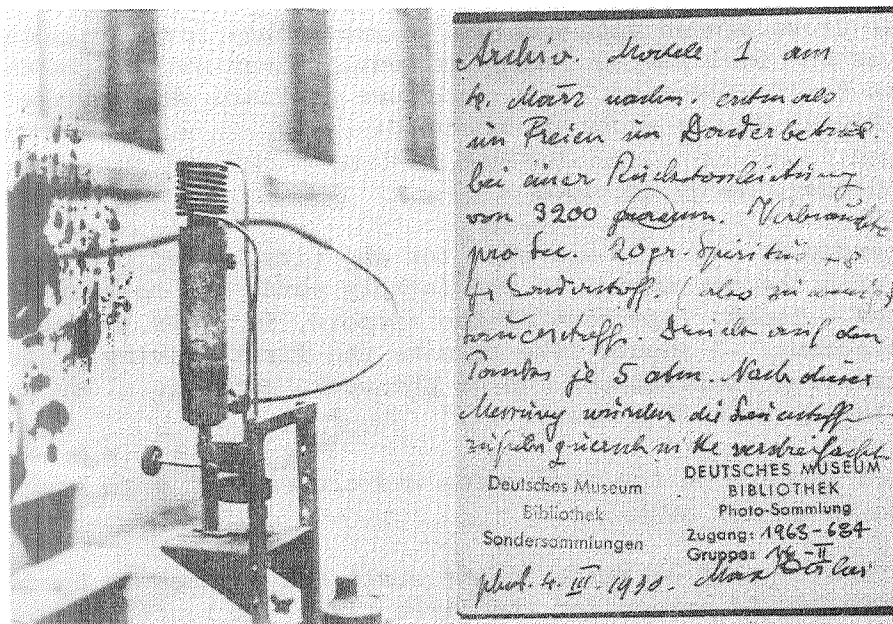 Archiv. Modell 1 am
4. März nachm. erstmals
im Freien im Sonderbetrieb.
bei einer Rückstossleistung
von 3200 gramm. Verbrauchte
pro Sec. 20 gr. Spiritus + 8
gr Sonderstoff. (also zu wenig)
Sauerstoff. Druck auf den
Tanks je 5 atm. Nach dieser
Messung wurden die Sauerstoff
querschnitte verdreifacht.
Deutsches Museum
Bibliothek
Sondersammlungen
DEUTSCHES MUSEUM
BIBLIOTHEK
Photo-Sammlung
Zugang: 1963-684
Gruppe:
phot. 4. III. 1930. Max Valier